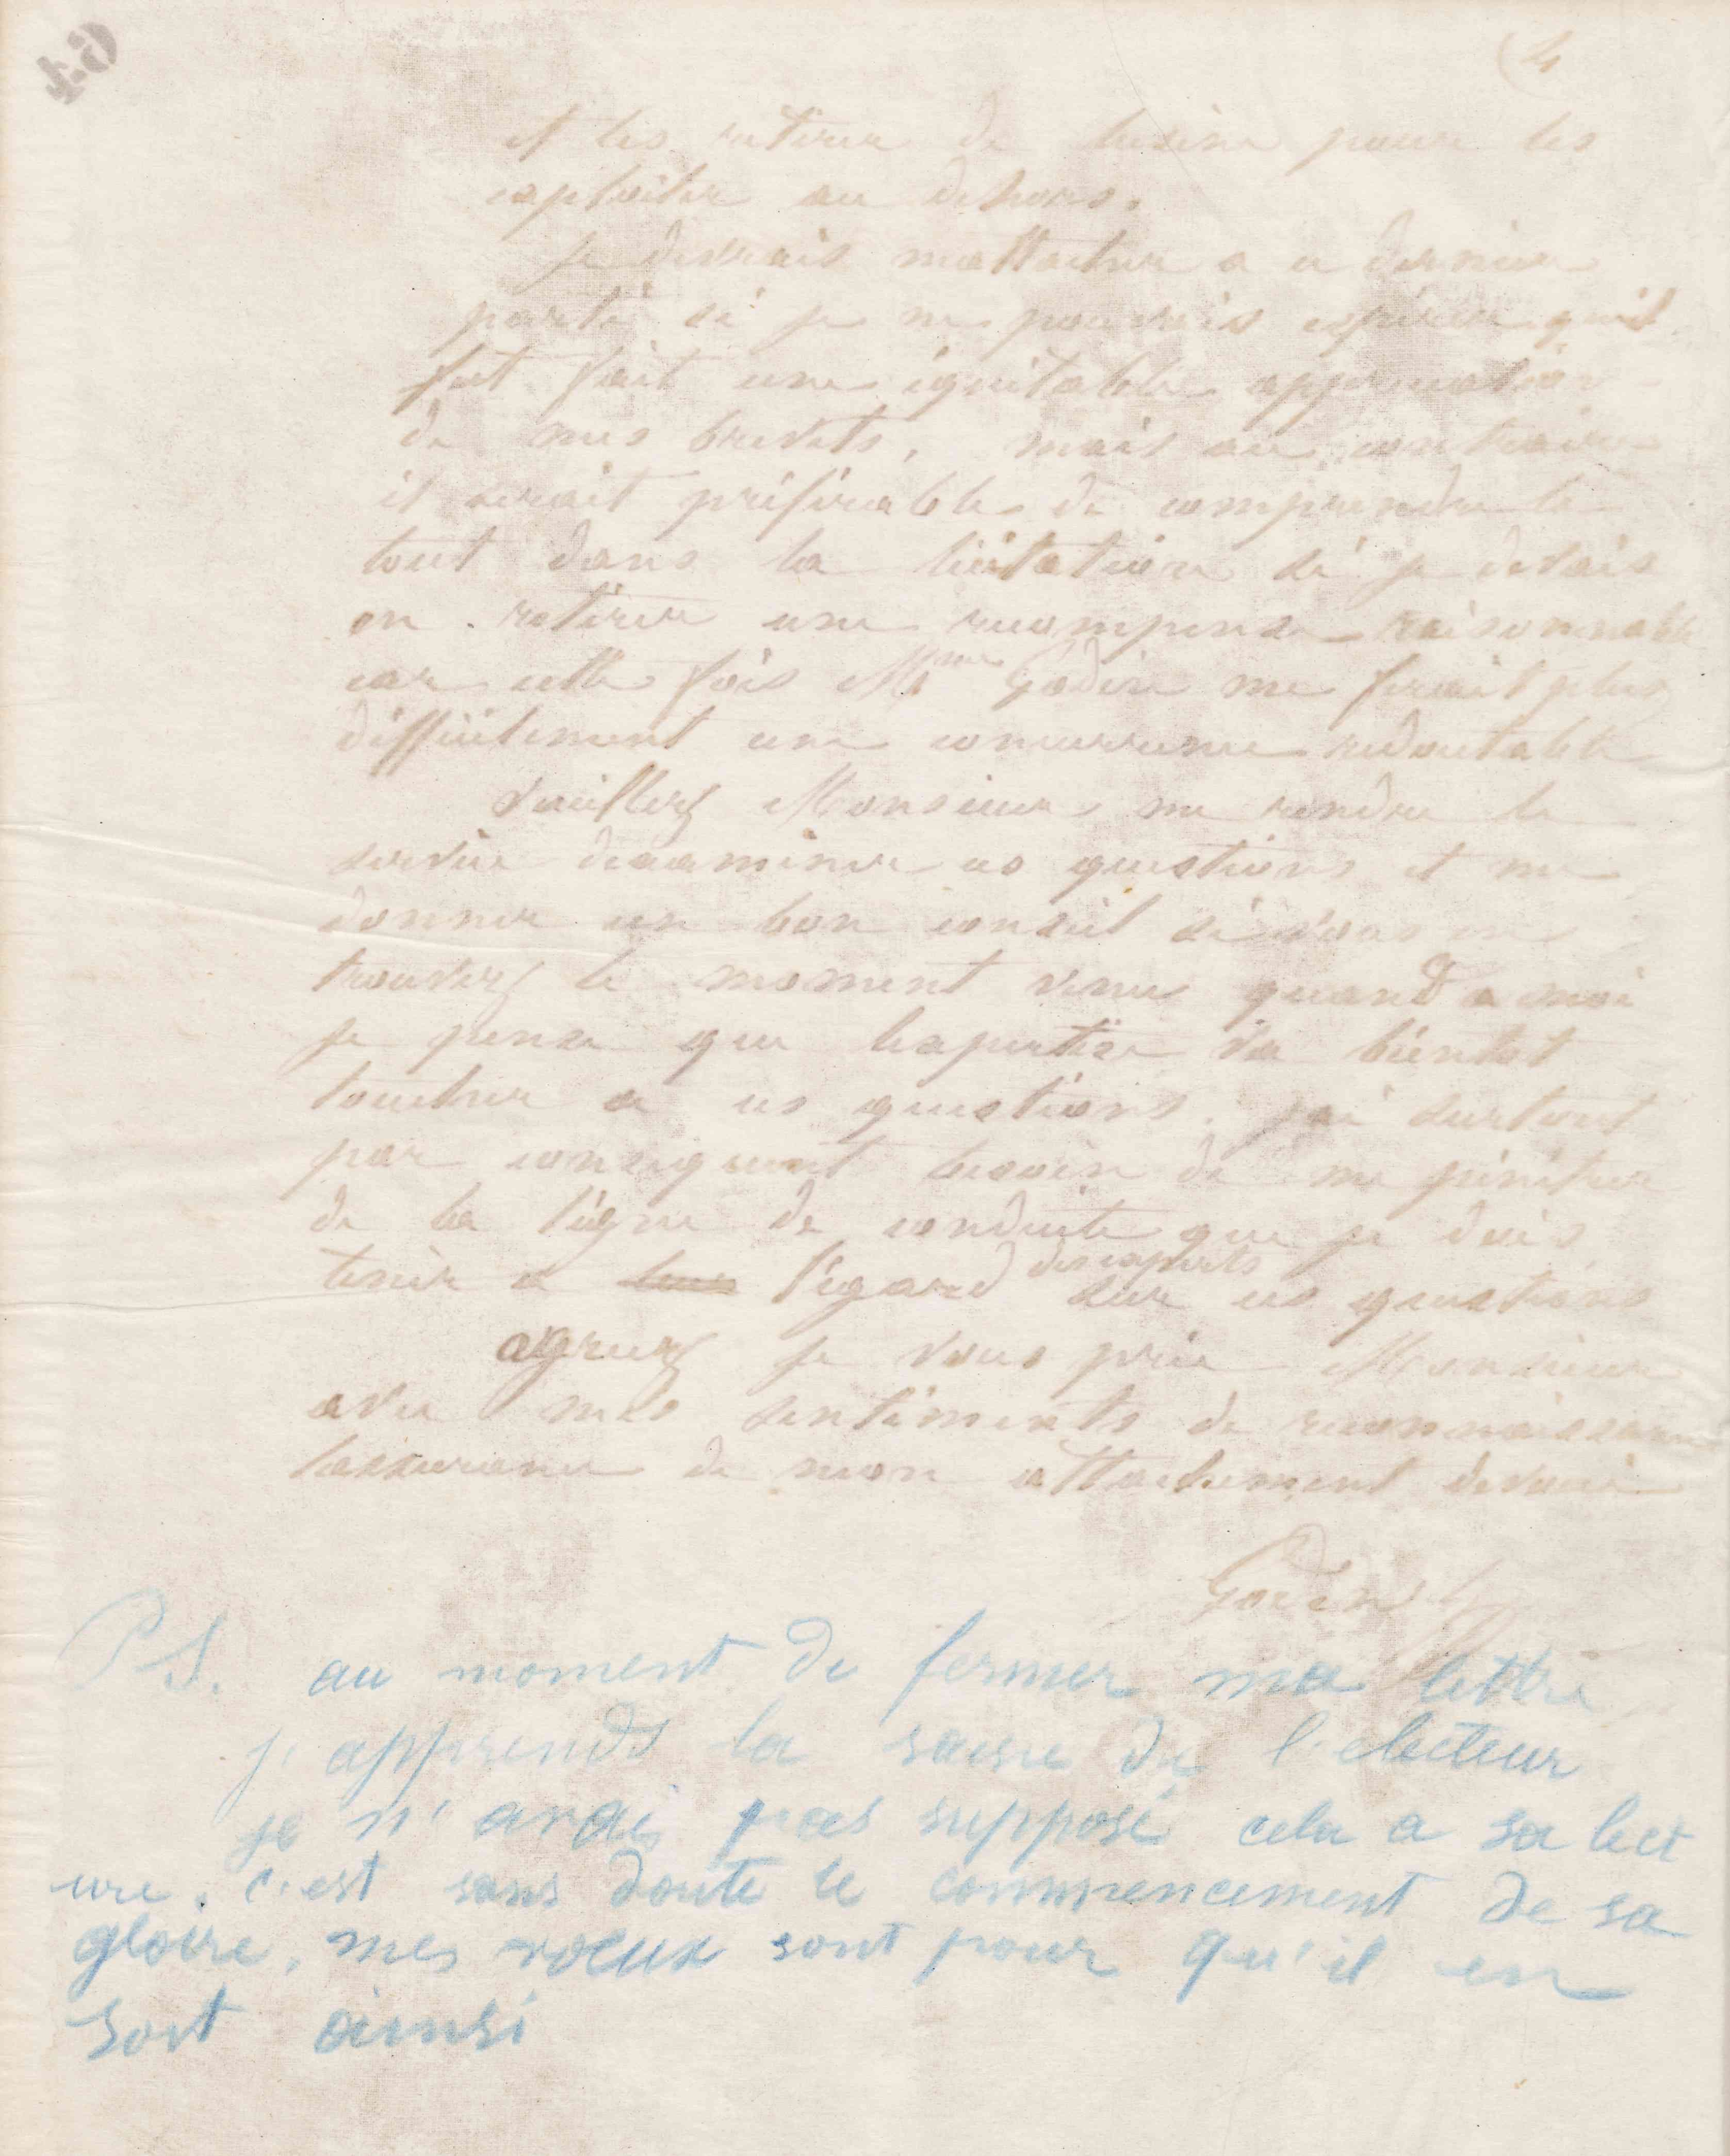 64
(4
et les retirer de lusine pour les
exploiter au dehors.
Je devrais mattacher a ce dernier
parti si je ne pouvais espérer quil
fut fait une équitable appréciation
de mes brevets, mais au contraire
il serait préférable de comprendre le
tout dans la licitation si je devais
en retirer une recompense raisonnable
car cette fois Mme Godin me ferait plus
difficilement une concurrence redoutable
Veuillez Monsieur me rendre le
service dexaminer ces questions et me
donner un bon conseil si vous en
trouvez le moment venu quand a moi
je pense que lexpertise va bientot
toucher a ces questions. jai surtout
par conséquent besoin de me pénétrer
de la ligne de conduite que je dois
tenir a leur l'égard des experts sur ces questions
agreez je vous prie Monsieur
avec mes sentiments de reconnaissance
lassurance de mon attachement devoué
Godin
P.S. au moment de fermer ma lettre
j'apprends la saisie de l'electeur
je n'avais pas supposé cela a sa lect
ure. c'est sans doute le commencement de sa
gloire, mes voeux sont pour qu'il en
sort ainsi